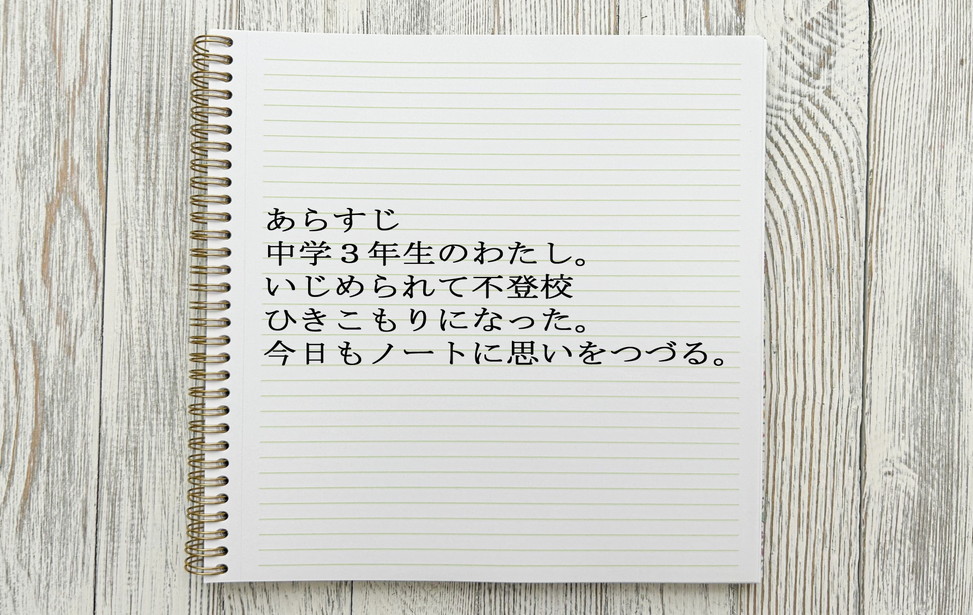 あらすじ
中学３年生のわたし。
いじめられて不登校
ひきこもりになった。
今日もノートに思いをつづる。